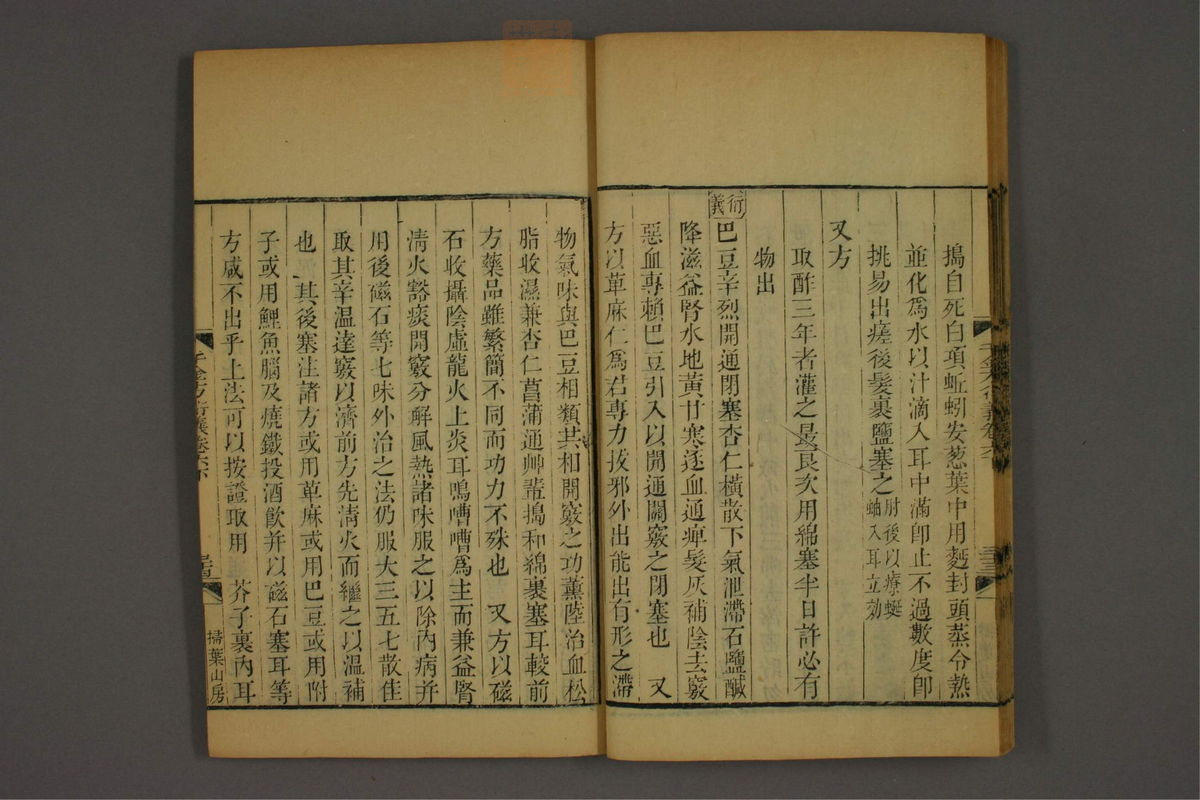 搗自死白項蚯蚓安葱葉中用麪封頭蒸令熟
並化爲水以汁滴入耳中滿卽止不過數度卽
挑易出瘥後髮裹鹽塞之肘後以療蜒
蚰入耳立効
又方
取酢三年者灌之最良次用綿塞半日許必有
物出
衍義
巴豆辛烈開通閉塞杏仁橫散下氣泄滯石鹽鹹
降滋益腎水地黃甘寒逐血通痺髮灰補陰去竅
惡血專賴巴豆引入以開通關竅之閉塞也 又
方以萆麻仁爲君專力拔邪外出能出有形之滯
千金方衍義卷六
三三
物氣味與巴豆相類其相開竅之功薰陸治血松
脂收濕兼杏仁菖蒲通艸輩搗和綿裹塞耳較前
方藥品雖繁簡不同而功力不殊也 又方以磁
石收攝陰虛龍火上炎耳鳴嘈嘈爲主而兼益腎
淸火豁痰開竅分解風熱諸味服之以除內病并
用後磁石等七味外治之法仍服大三五七散隹
取其辛温達竅以濟前方先淸火而繼之以温補
也 其後塞注諸方或用萆麻或用巴豆或用附
子或用鯉魚腦及燒鐵投酒飮并以磁石塞耳等
方咸不出乎上法可以按證取用 芥子裹內耳
千金方衍義卷六下
三四
掃葉山房